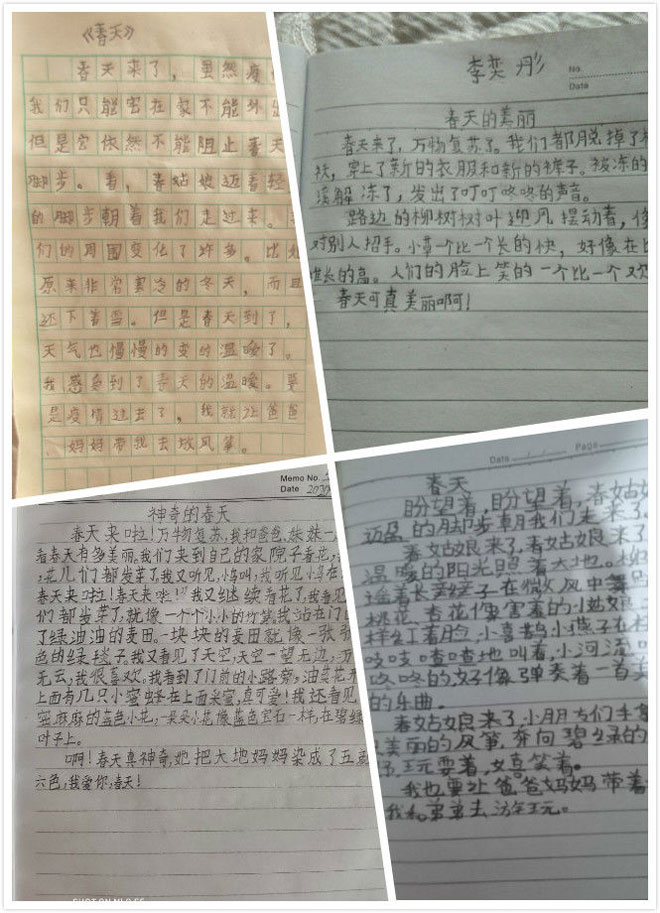 《春天》
春天来了，虽然疫
我们只能宅在家不能外出
但是它依然不能阻止春天
脚步。看，春姑娘迈着轻
的脚步朝着我们走过来。
们的周围变化了许多。比如
原来非常寒冷的冬天，而且
还下着雪。但是春天到了，
天气也慢慢的变的温暖了。
我感觉到了春天的温暖。要
是疫情过去了，我就让爸爸
、妈妈带我去放风筝。
李奕彤
No
Date
春天的美丽
春天来了，万物复苏了。我们都脱掉了
袄，穿上了新的衣服和新的裤子。被冻的
溪解冻了，发出了叮叮咚咚的声音。
路边的柳树树叶迎风摆动着，像
对别人招手。小草一个比一个长的快，好像在比
谁长的高。人们的脸上笑的一个比一个欢
春天可真美丽啊！
Memo No.
Date 2020
神奇的春天
春天来啦！万物复苏，我和爸爸，妹妹一
看春天有多美丽。我们来到自己的家院子看花，
，花儿们都发芽了，我又听见，小鸟叫，我听见小鸟在
春天来啦！春天来啦！”我又继续看花了，我看见
们都步芽了，就像一个个小小的竹笋。我站在门
了绿油油的麦田。一块块的麦田就像一张张
色的绿毯子。我又看见了天空，天空一望无边，万
无云，我很喜欢。我看到了门前的小路旁，油菜花
上面有几只小蜜蜂在上面采蜜，真可爱！我还看见
密麻麻的蓝色小花，一朵朵小花像蓝色宝石一样，在碧绿
叶子上。
啊！春天真神奇，她把大地妈妈染成了五颜
六色，我爱你，春天！
Date
Page
春天
盼望着，盼望着，春姑娘
迈盈的脚步朝我们走来了。
春姑娘来了，春姑娘来了
温暖的阳光照着大地。
摇着长辫子在微风中舞
桃花、杏花像害羞的小姑娘
样红着脸，小喜鹊、小燕子在
吱吱喳喳地叫着，小河流
咚咚的，好像弹奏着一首美
的乐曲。
春姑娘来了，小朋友们手拿
美丽的风筝，奔向碧绿的
玩耍着，嬉笑着。
我也要让爸爸妈妈带着
我和弟弟去游玩。